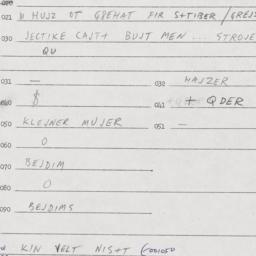 021 A HUJZ OT GREHAT FIR STTIBER / GREJS
030 JECTIKE CAJT+ BUJT MEN ... STROJE
QU
031 —
032 HAJZER
040 $
041 + QDER
050 KLEJNER MUJER
051 —
060 0
070 BEJDIM
080 0
090 BEJDIMS
KIN VELT NIST